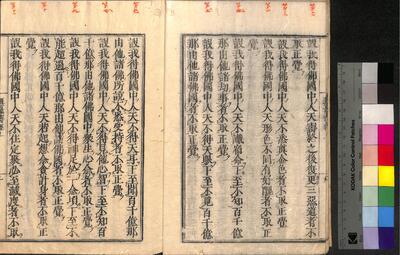 設我得佛國中人天壽終之後復更三惡道者不
取正覺
設我得佛國中人天不悉眞金色者不取正覺
設我得佛國中人天形色不同有好醜者不取正覺
設我得佛國中人天不識宿命下至不知百千億
那由他諸劫事者不取正覺
設我得佛國中人天不得天眼下至不見百千億
那由他諸佛國者不取正覺
設我得佛國中人天不得天耳下至聞百千億那
由他諸佛所說不悉受持者不取正覺
設我得佛國中人天不得見他心智下至不知百
千億那由他諸佛國中衆生心念者不取正覺
設我得佛國中人天不得神足於一念頃下至不
能超過百千億那由他諸佛國者不取正覺
設我得佛國中人天若起想念貪計身者不取正
覺
設我得佛國中人天不住定聚必至滅度者不取
KODAK Color Control Patches